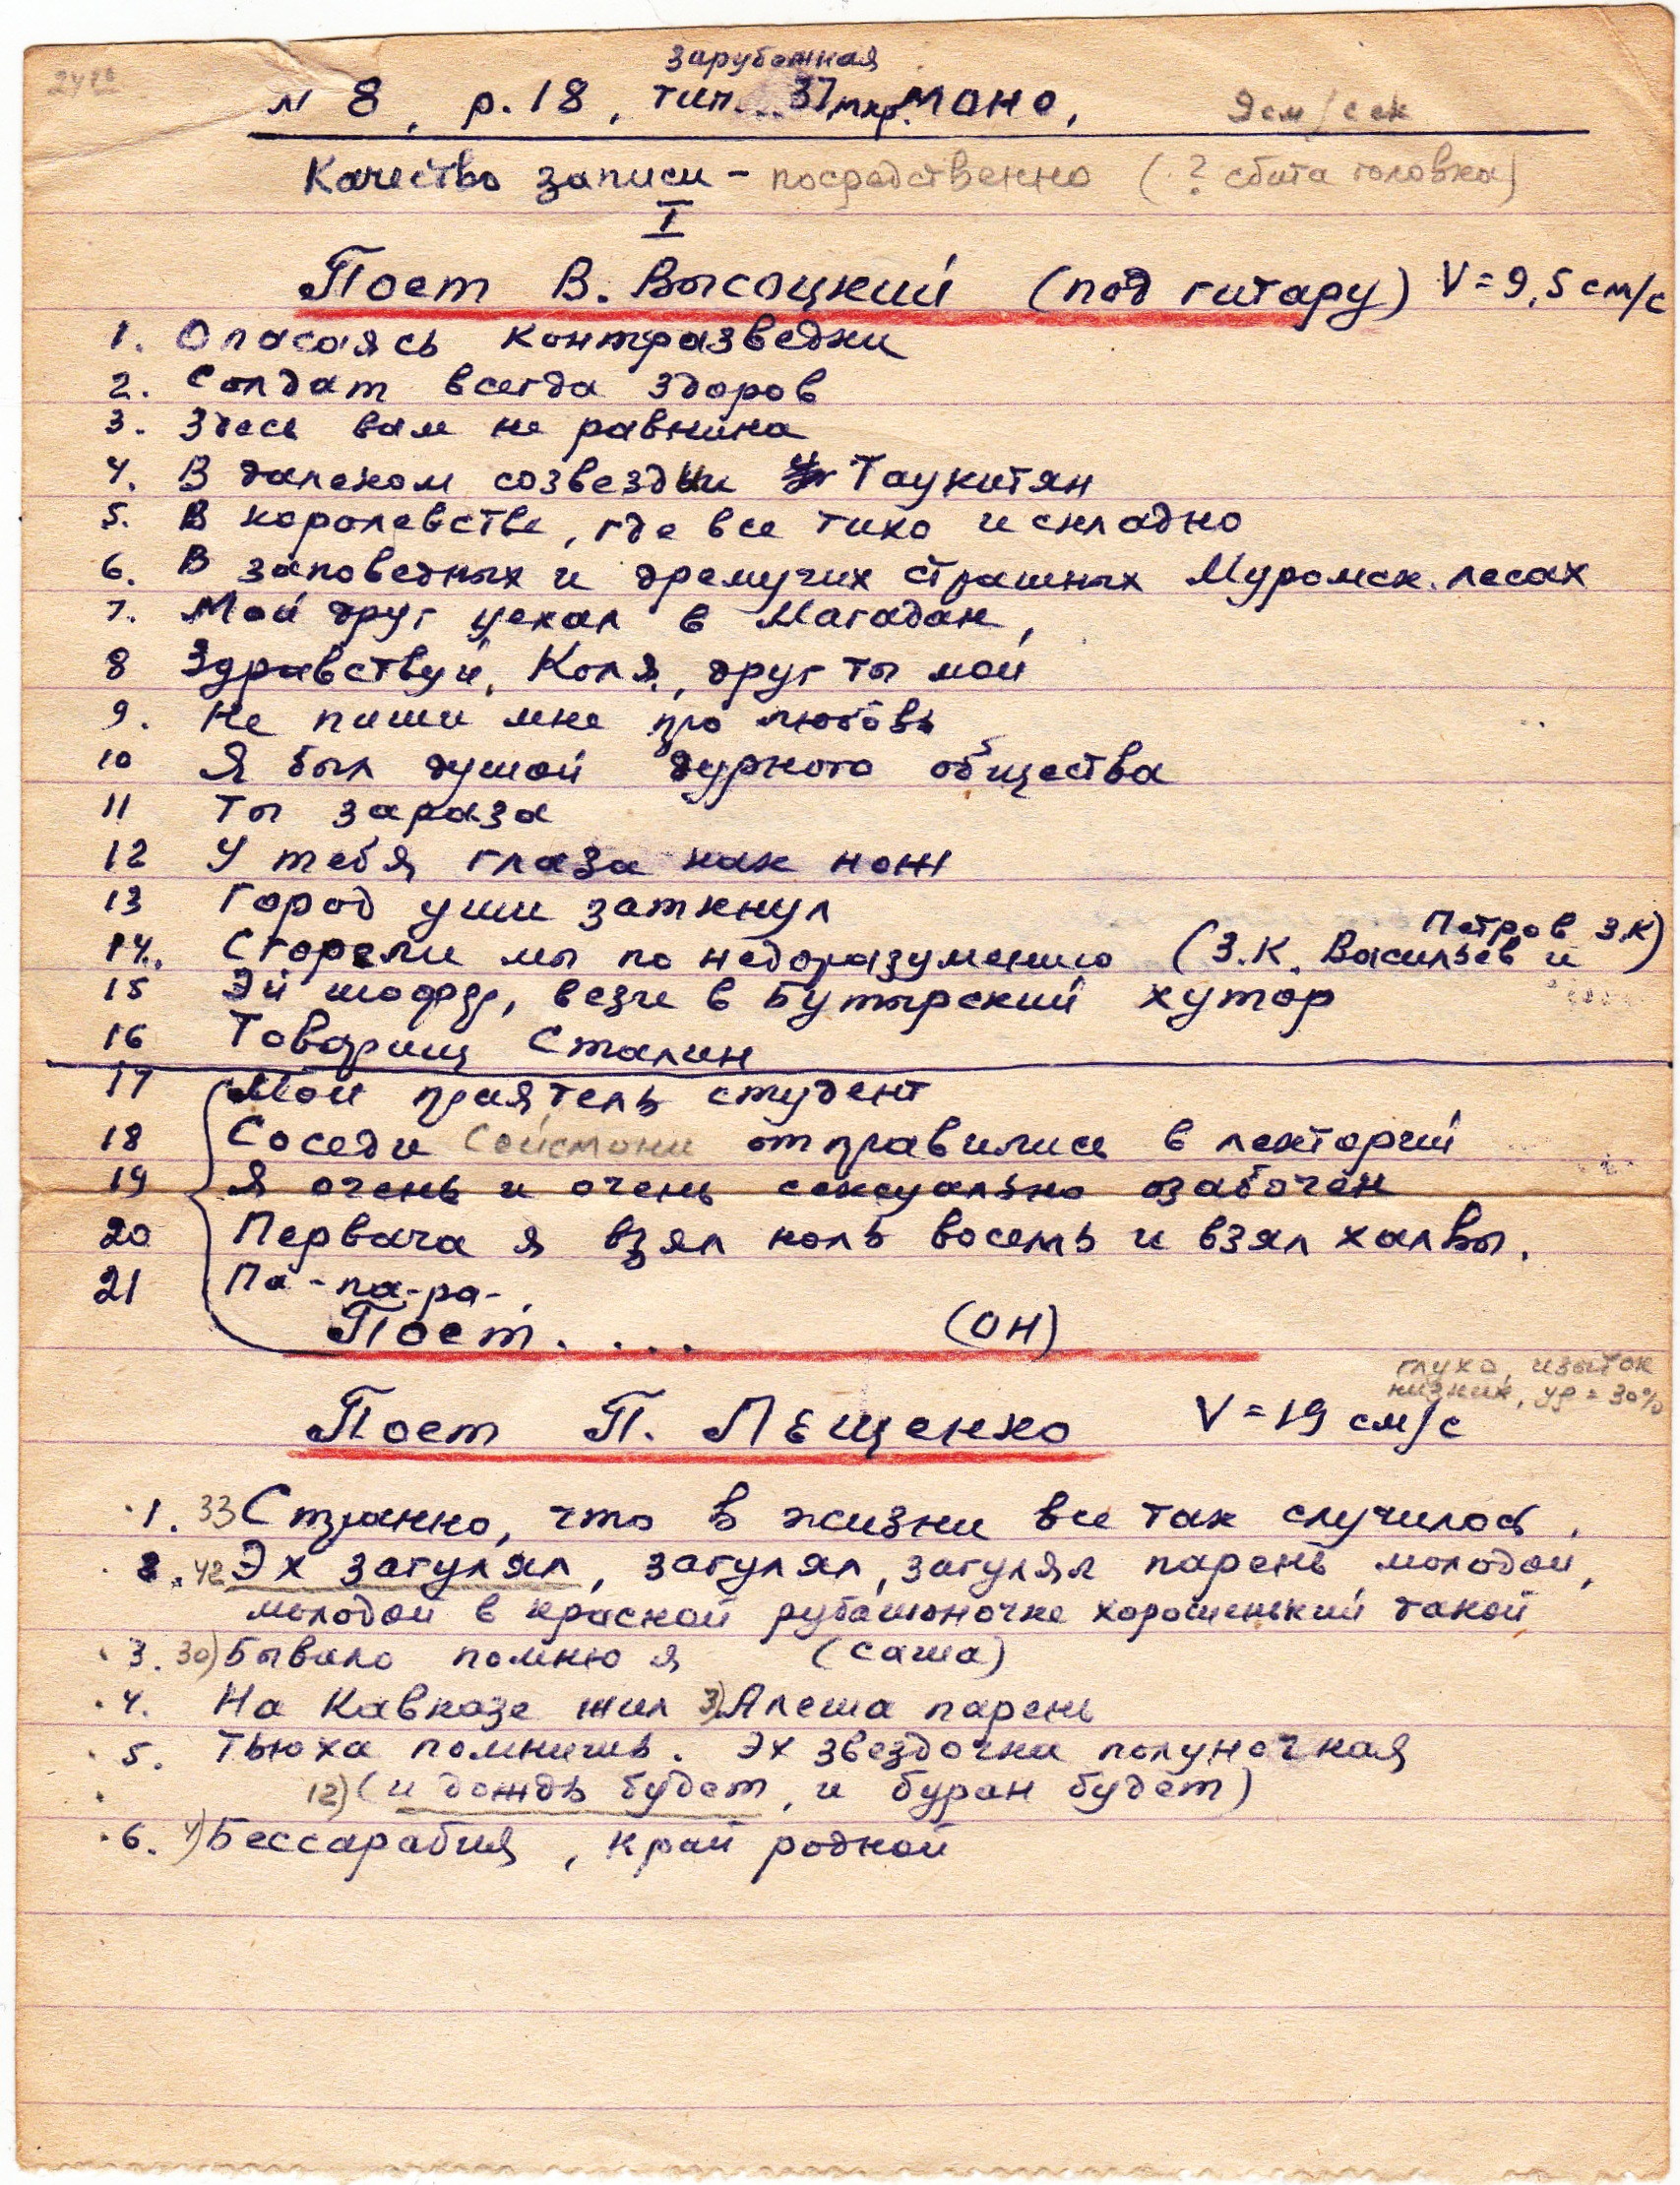 зарубежная
N 8, р. 18, тип. 37 мкр. МОНО, 9 см/сек
Качество записи - посредственно (? сбита головка)
I
Поет В. Высоцкий (под гитару) V=9,5 см/с
1. Опасаясь контразведки
2. Солдат всегда здоров
3. Здесь вам не равнина
4. В далеком созвездии Таукитян
5. В королевстве, где все тихо и складно
6. В заповедных и дремучих страшных Муромск. лесах
7. Мой друг уехал в Магадан,
8 Здравствуй, Коля, друг ты мой
9. Не пиши мне про любовь
10 Я был душой дурного общества
11 Ты зараза
12 У тебя глаза как нож
13 Город уши заткнул
14. Сгорели мы по недоразумению (З.К. Васильев и Петров З.К)
15 Эй шофер, вези в Бутырский хутор
16 Товарищ Сталин
17 Мой приятель студент
18 Соседи Сейсмони отправились в лекторий
19 Я очень и очень сексуально озабочен
20 Первача я взял ноль восемь и взял халвы.
21 Па-па-ра-.
Поет.... (ОН)
глухо, избыток
низких, УР = 30%
Поет П. Лещенко V=19 см/с
1. 33 Странно, что в жизни все так случилось.
2. 42 Эх загулял, загулял, загулял парень молодой,
молодой в красной рубашоночке хорошенький такой
3. 30) Бывало помню я (Саша)
4. На Кавказе жил 3) Алеша парень
5. Тьюха помнишь. Эх звездочка полуночная
12) (и дождь будет, и буран будет)
6. 4) Бессарабия, край родной